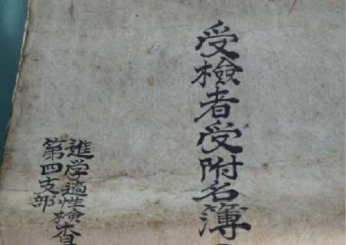 受檢者受附名簿
進学適性檢查
第四支部